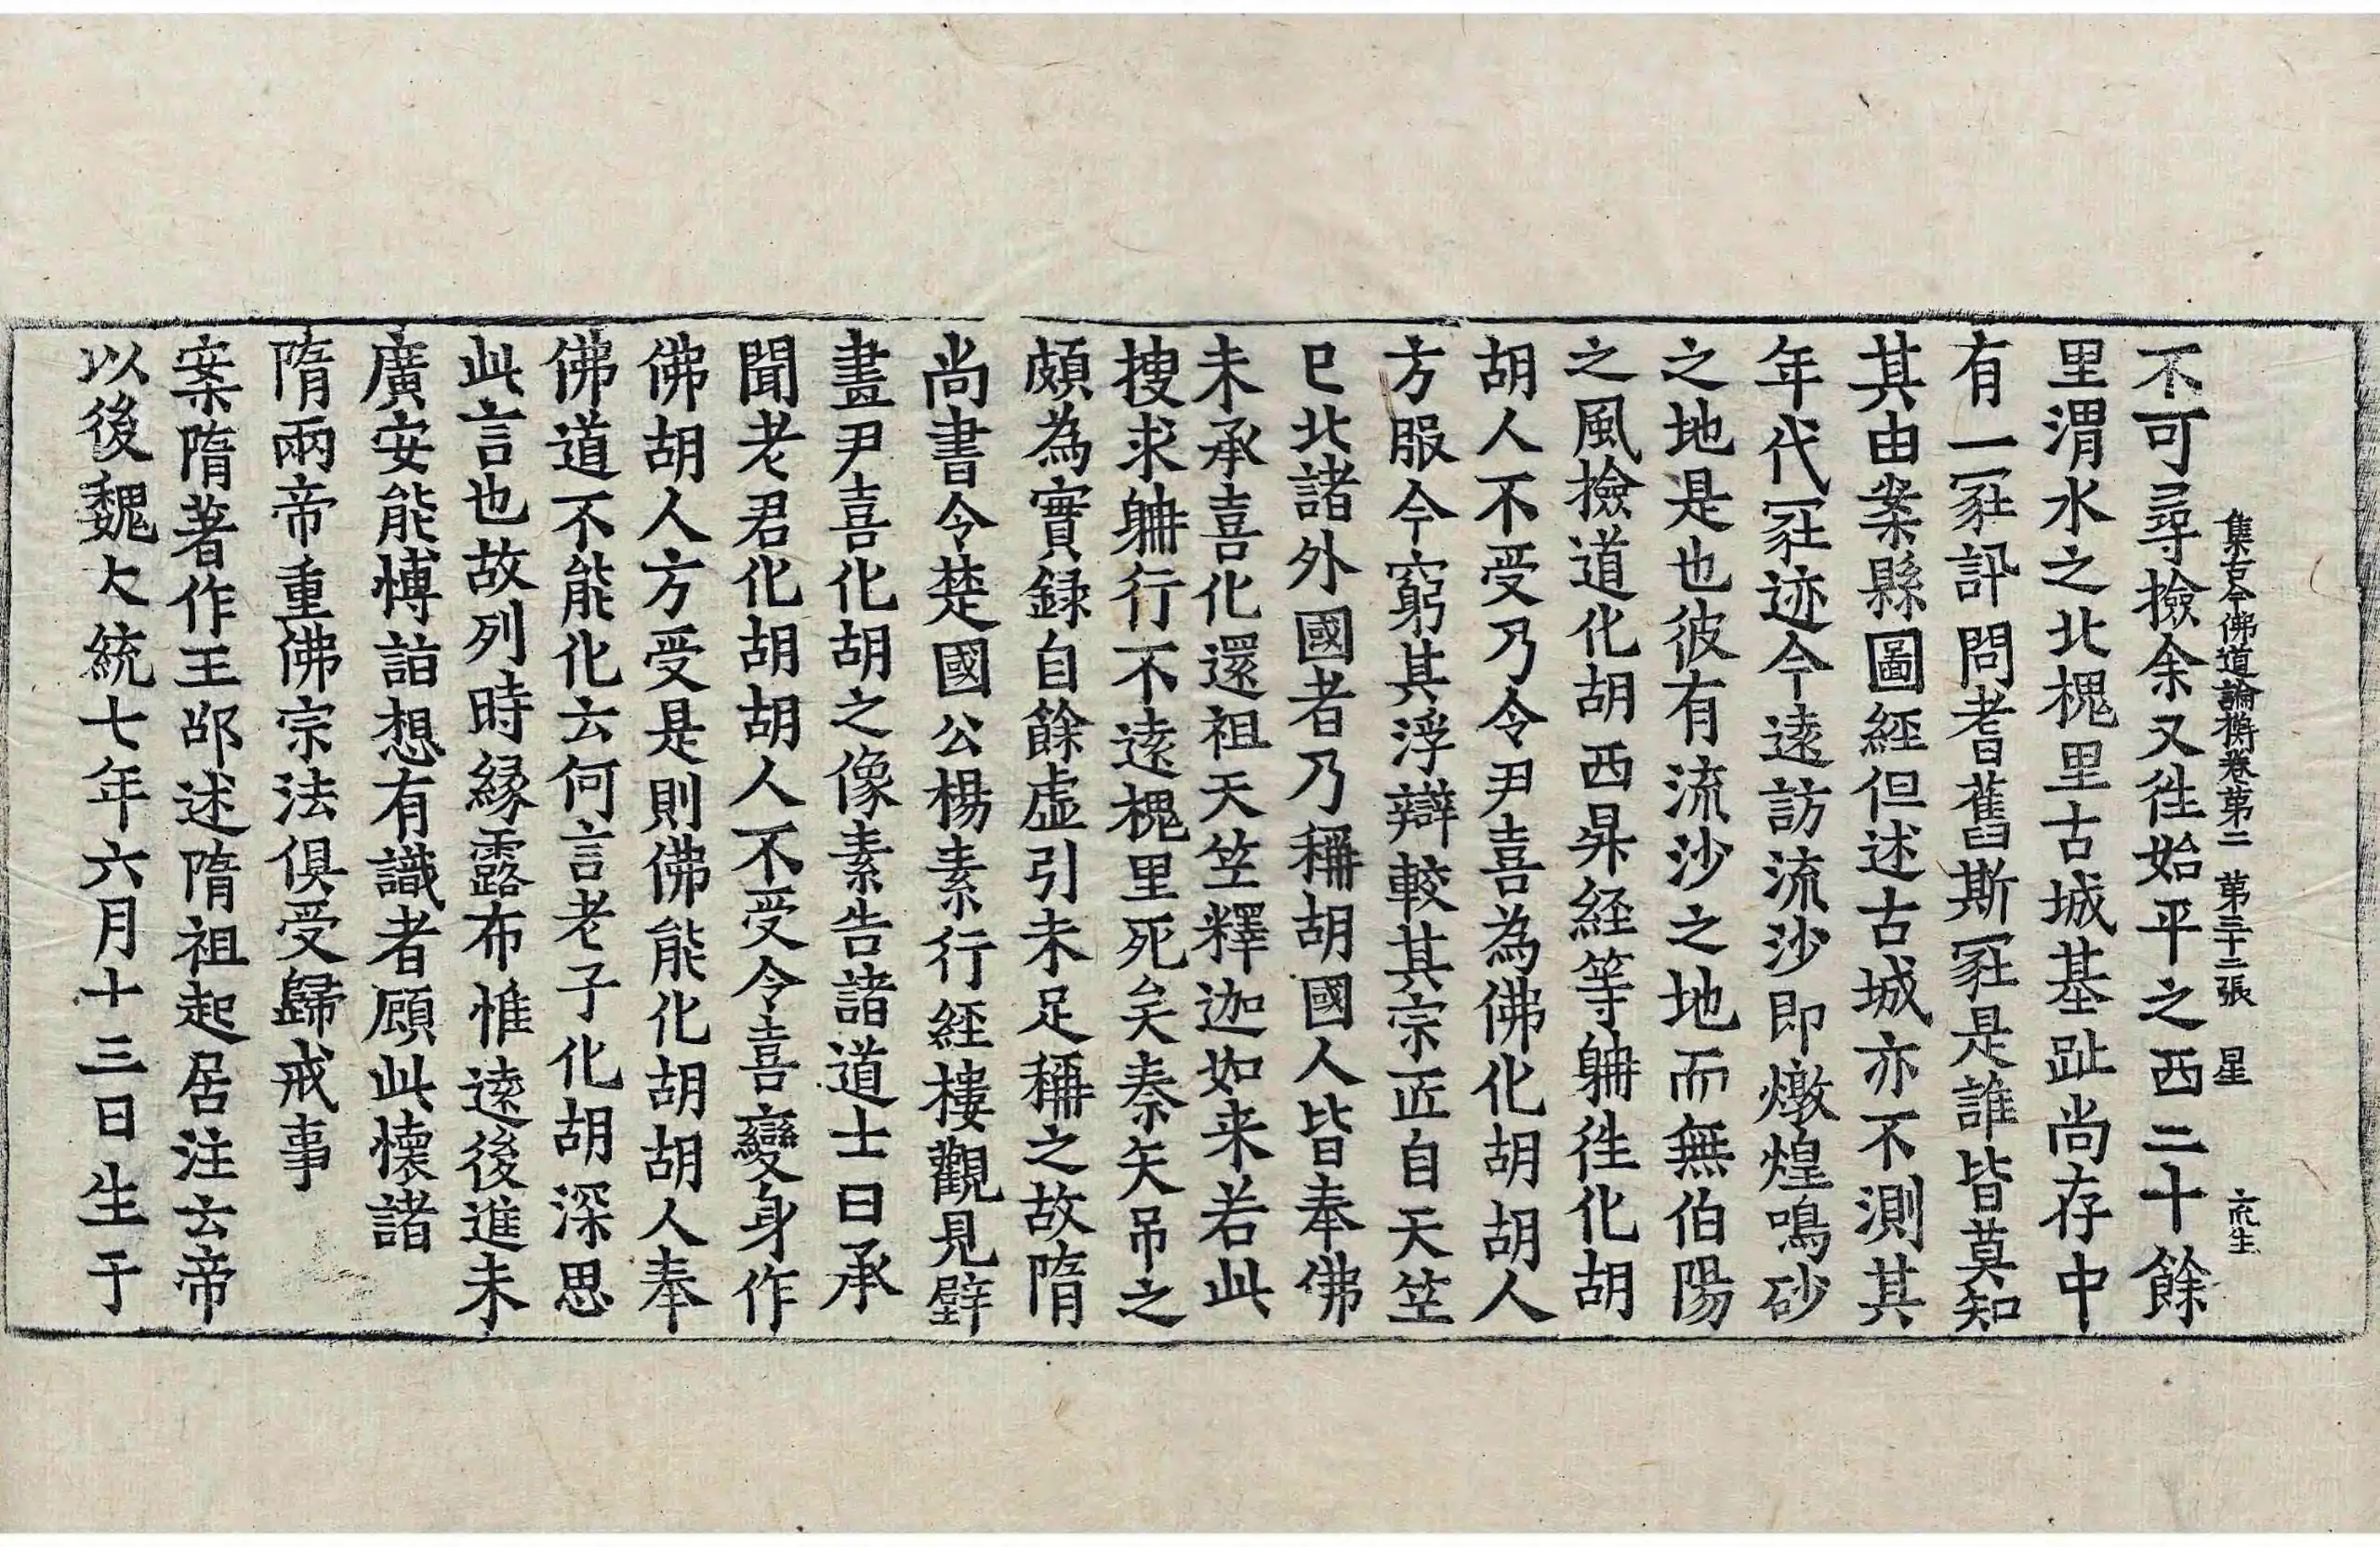 集古今佛道論衡卷第二 第三十二張 星
不可尋撿余又徃始平之西二十餘
里渭水之北槐里古城基趾尚存中
有一冢訊問耆舊斯冢是誰皆莫知
其由案縣圖経但述古城亦不測其
年代冢迹今逺訪流沙即燉煌鳴砂
之地是也彼有流沙之地而無伯陽
之風撿道化胡西昇経等躬徃化胡
胡人不受乃令尹喜為佛化胡胡人
方服今窮其浮辯較其宗匠自天笁
已北諸外國者乃稱胡國人皆奉佛
未承喜化還祖天笁釋迦如来若此
搜求躬行不逺槐里死矣秦失吊之
頗為實録自餘虛引未足稱之故隋
尚書令楚國公楊素行経樓觀見壁
畫尹喜化胡之像素告諸道士曰承
聞老君化胡胡人不受令喜變身作
佛胡人方受是則佛能化胡胡人奉
佛道不能化云何言老子化胡深思
此言也故列時縁露布惟逺後進未
廣安能愽詣想有識者顧此懐諸
隋兩帝重佛宗法俱受歸戒事
案隋著作王邵述隋祖起居注云帝
以後魏大統七年六月十三日生于